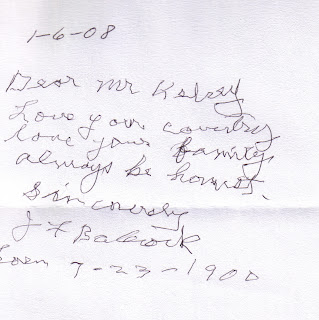 1-6-08
Dear Mr Kelsey
Love your country
love your family
always be honest.
Sincerely
J F Babcock
born 7-23-1900